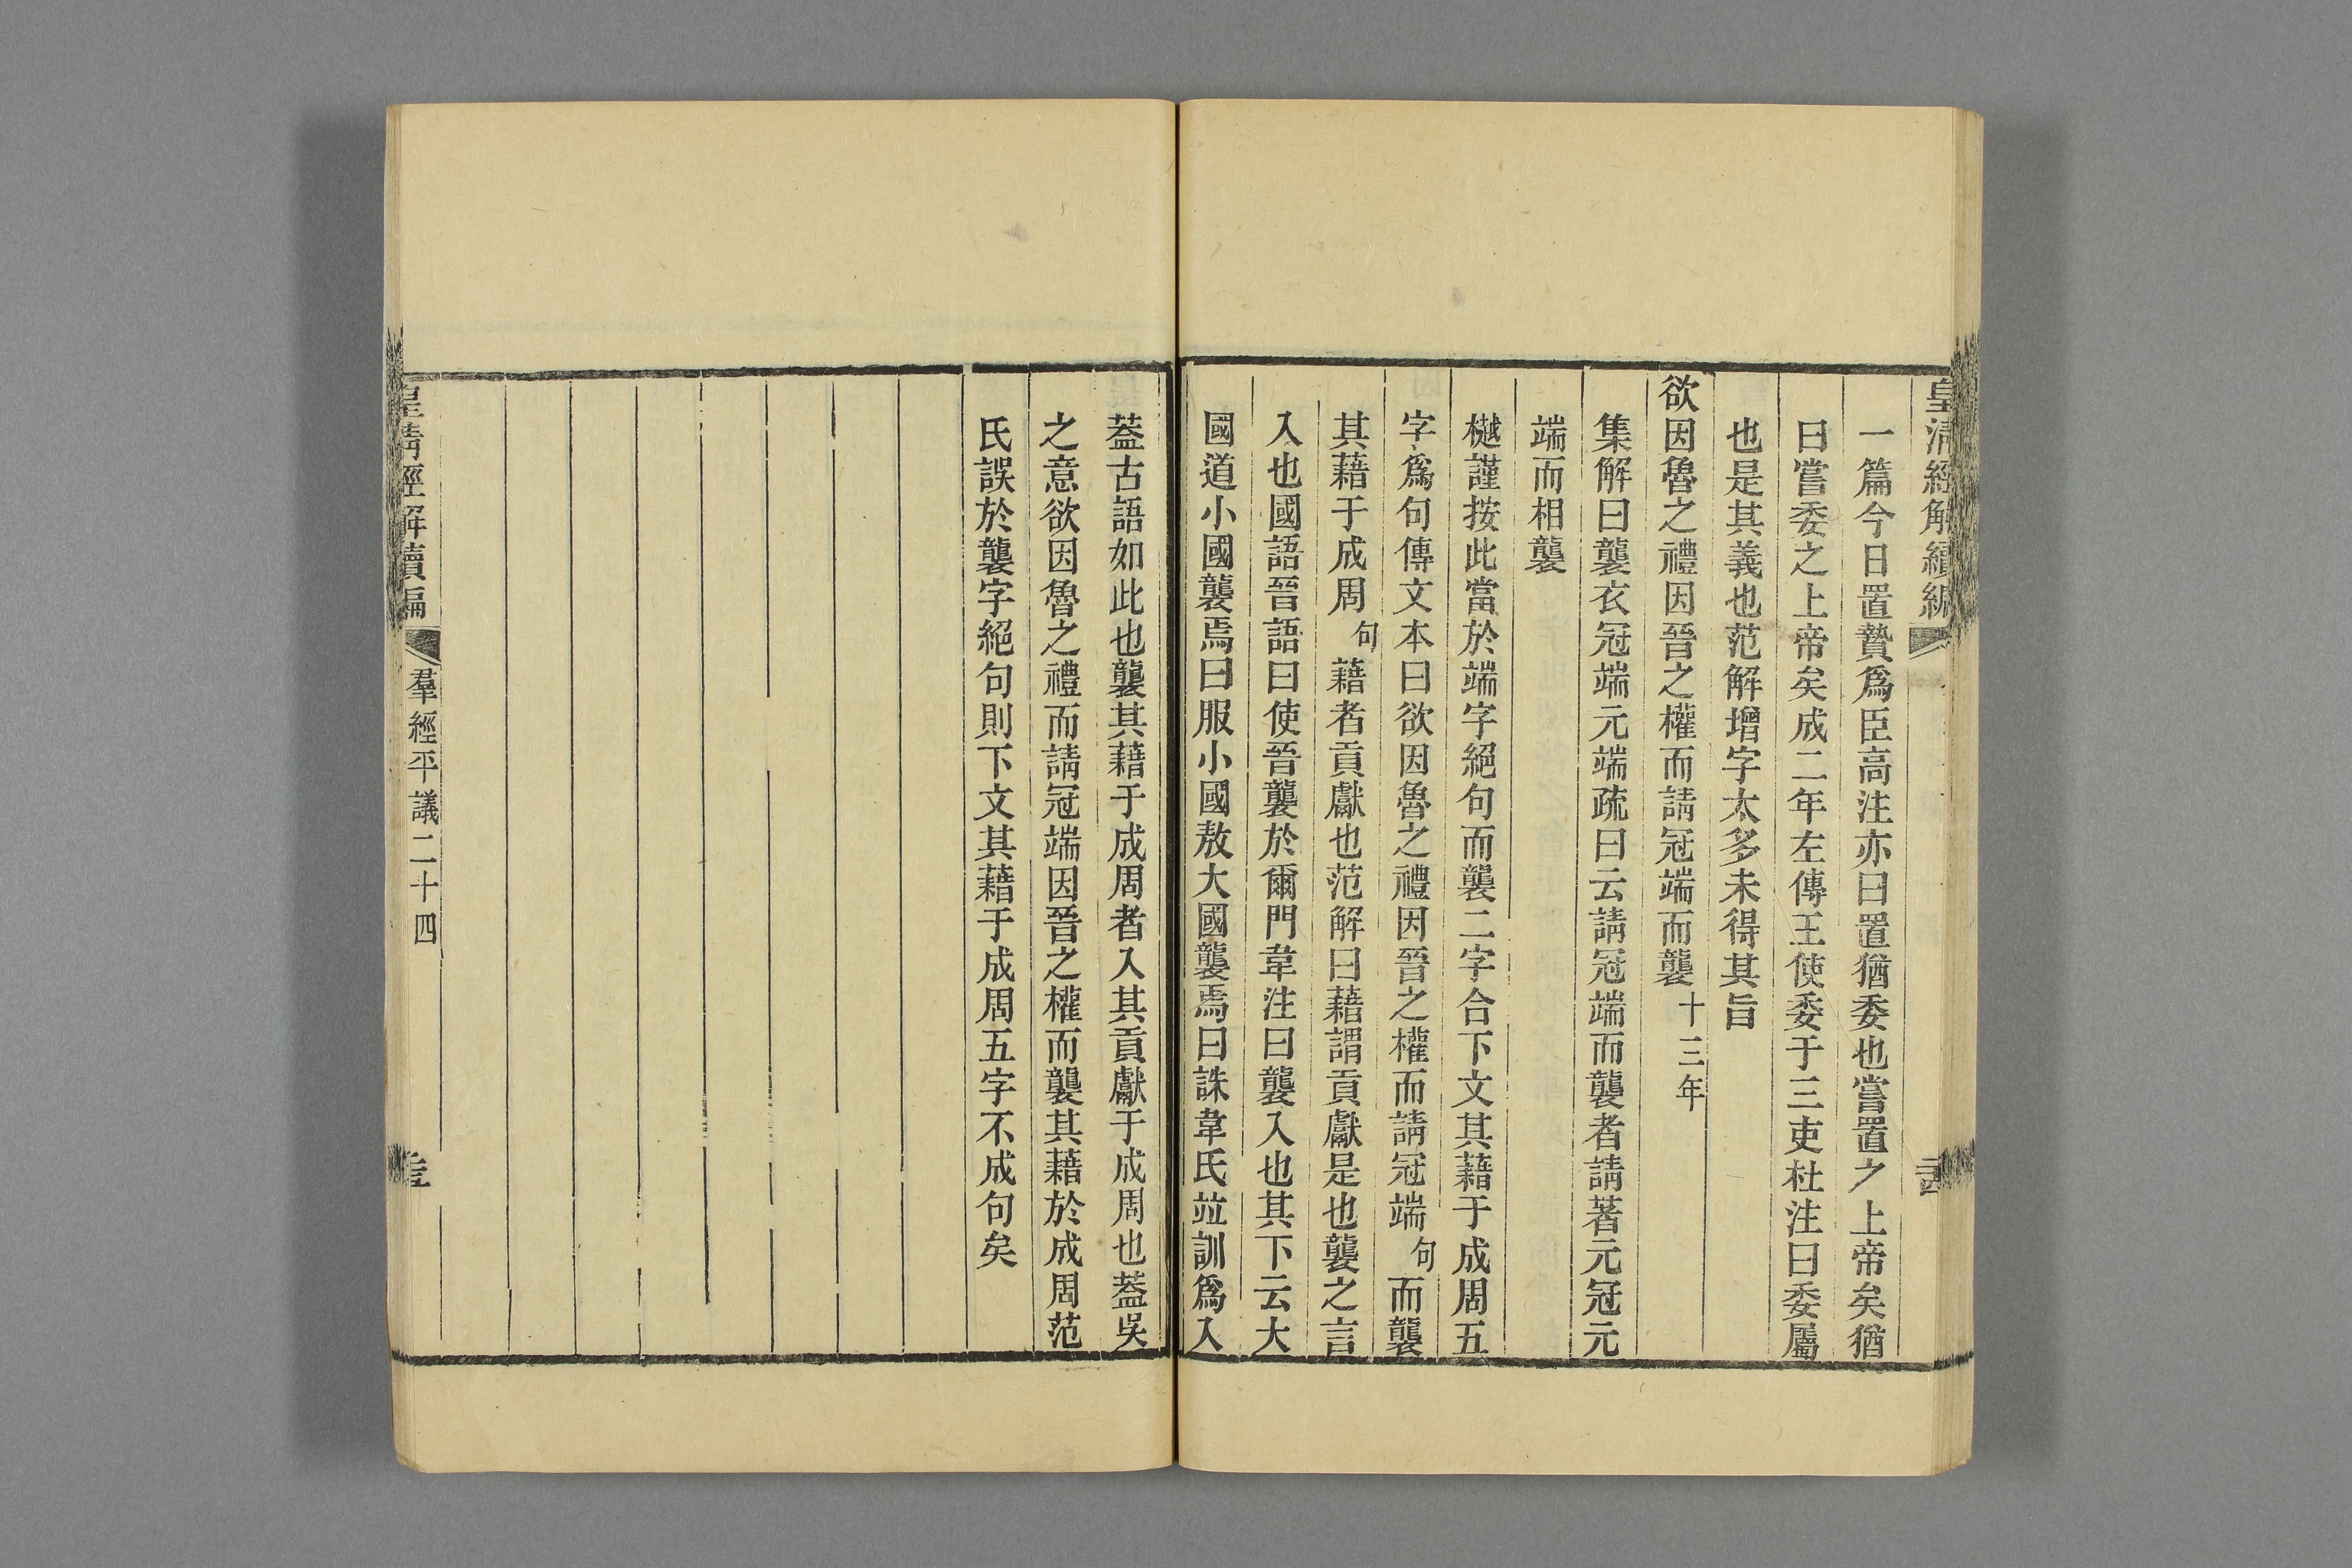 皇清經解續編
一篇今日置贄爲臣高注亦曰置猶委也嘗置之上帝矣猶
曰嘗委之上帝矣成二年左傳王使委于三吏杜注曰委屬
也是其義也范解增字太多未得其旨
欲因魯之禮因晉之權而請冠端而襲 十三年
集解曰襲衣冠端元端疏曰云請冠端而襲者請著元冠元
端而相襲
樾謹按此當於端字絕句而襲二字合下文其藉于成周五
字爲句傳文本曰欲因魯之禮因晉之權而請冠端句而襲
其藉于成周句藉者貢獻也范解曰藉謂貢獻是也襲之言
入也國語晉語曰使晉襲於爾門韋注曰襲入也其下云大
國道小國襲焉曰服小國敖大國襲焉曰誅韋氏竝訓爲入
葢古語如此也襲其藉于成周者入其貢獻于成周也葢吳
之意欲因魯之禮而請冠端因晉之權而襲其藉於成周范
氏誤於襲字絕句則下文其藉于成周五字不成句矣
皇清經解續編 羣經平議二十四